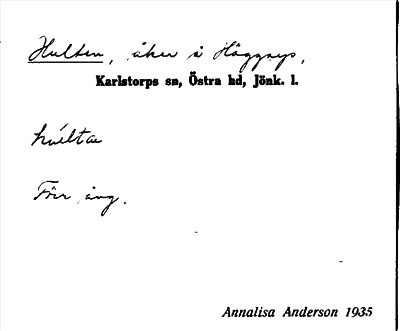 Hulten, åker i Häggnys,
Karlstorps sn, Östra hd, Jönk. l.
húlta
Förr äng.
Annalisa Anderson 1935